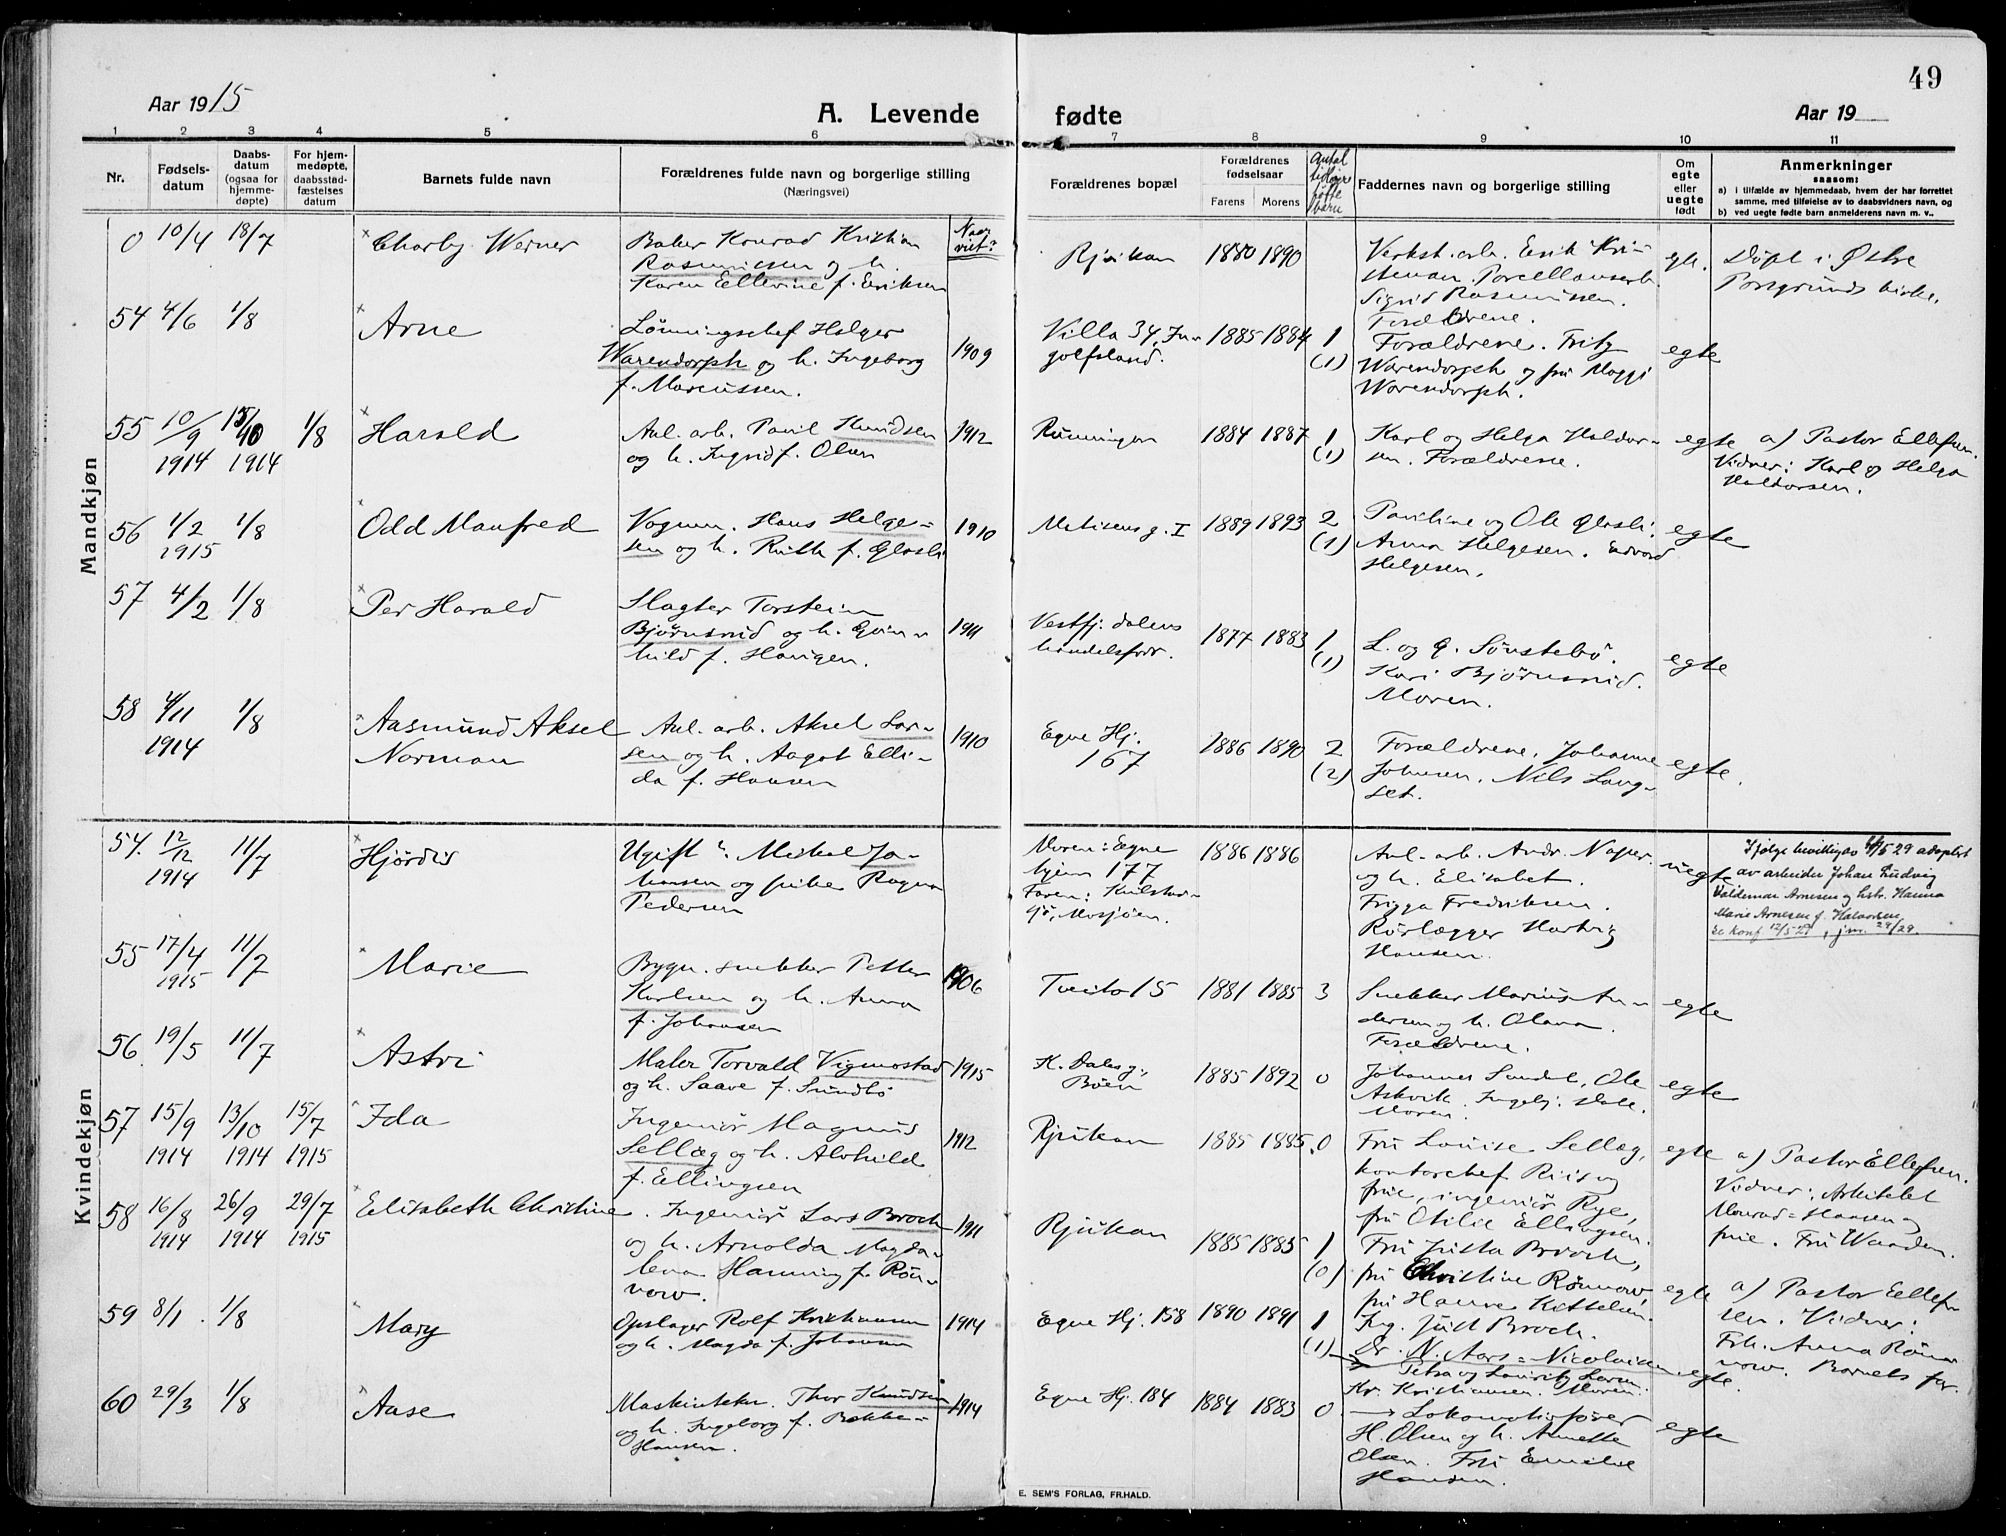 49
Aar 1915
A. Levende fødte
Aar 19
1 2 3 4 5 6 7 8 9 10 11
Nr.
Fødsels-
datum
Daabs-
datum
(ogsaa for
hjemme-
døpte)
For hjem-
medøpte,
daabsstad-
fæstelses
datum
Barnets fulde navn
Forældrenes fulde navn og borgerlige stilling
(Næringsvei)
Forældrenes bopæl
Forældrenes
fødselsaar
Farens Morens
Antal
tidligere
fødte
barn
Faddernes navn og borgerlige stilling
Om
egte
eller
uegte
født
Anmerkninger
saasom:
a) i tilfælde av hjemmedaab, hvem der har forrettet
samme, med tilføielse av to daabsvidners navn, og
b) ved uegte fødte barn anmelderens navn m. v..
Naar
viet?
Mandkjøn
0 10/4 18/7 Charly Werner
Baker Konrad Kristian
Rasmussen og h.
Karen Ellevine f. Eriksen
Rjukan 1880 1890
Verkst. arb. Erik Kri-
stensen. Porcellænsarb.
Sigrid Rasmussen.
Forældrene.
egte.
Døpt i Østre
Porsgrunds kirke.
54 4/6 1/8 Arne
Lønningschef Holger
Warendorph og h. Ingeborg
f. Marcussen.
1909
Villa 34, In-
golfsland.
1885 1884 1
(1)
Forældrene. Fritz
Warendorph og fru Maggi
Warendorph.
egte
55 10/9 1914 15/10 1914 1/8 Harald
Anl. arb. Paul Knudsen
og h. Ingrid f. Olsen
1912
Runningen 1884 1887 1
(1)
Karl og Helga Haldor-
sen. Forældrene.
egte
a) Pastor Ellefsen.
Vidner: Karl og Helga
Haldorsen.
56 1/2 1915 1/8 Odd Manfred
Vognm. Hans Helge-
sen og h. Ruth f. Glasli
1910
Melisens g. I 1889 1893 2
(1)
Pauline og Ole Glasli.
Anna Helgesen. Edvard
Helgesen.
egte
57 4/2 1/8 Per Harald
Slagter Torstein
Bjørnsrud og h. Gun-
hild f. Haugen.
1911
Vestfj. dalens
handelsfor.
1877 1883 1
(1)
L. og G. Sønstebø.
Kari Bjørnsrud.
Moren.
egte
58 4/11 1914 1/8 Aasmund Aksel
Norman
Anl. arb. Aksel Lar-
sen og h. Aagot Elli-
da f. Hansen
1910
Egne Hj.
167
1886 1890 2
(2)
Forældrene. Johanne
Johnsen. Nils Lang-
set.
egte.
Kvindekjøn
54. 12/12 1914 11/7 Hjørdis
Ugift Mikal Jo-
hansen og pike Ragna
Pedersen
Moren: Egne
hjem 177
Faren:
Mosjøen.
1886 1886
Anl. arb. Andr. Naper
og h. Elisabet.
Frigga Fredriksen.
Rørlægger Hartvig
Hansen.
uegte
Ifølge bevilling av 4/5 29 adoptert
av arbeider Johan Ludvig
Valdemar Arnesen og hstr. Hanna
Marie Arnesen f. Halvorsen
se konf 12/5 29, jnr. 29/29.
55 17/4 1915 11/7 Marie
Bygn. snekker Petter
Karlsen og h. Anna
f. Johansen
1906
Tveito 15 1881 1885 3
Snekker Marius An-
dersen og h. Olava.
Forældrene.
egte
56. 19/5 11/7 Astri
Maler Torvald Vigmostad
og h. Saave f. Sundbø
1915
K. Dales g.,
Bøen
1885 1892 0
Johannes Sundet, Ole
Askvik. Ingebj. Dale.
Moren.
egte
57 15/9 1914 13/10 1914 15/7 1915 Ida
Ingeniør Magnus
Sellæg og h. Alvhild
f. Ellingsen
1912
Rjukan 1885 1885 0
Fru Louise Sellæg,
kontorchef Riis og
frue, ingeniør Rye,
fru Otilie Ellingsen.
egte
a) Pastor Ellefsen.
Vidner: Arkitekt
Monrad-Hansen og
frue. Fru Waarden.
58 16/8 1914 26/9 1914 29/7 1915 Elisabeth Christine
Ingeniør Lars Broch
og h. Arnolda Magda-
lena Hanning f. Røn-
now.
1911
Rjukan 1885 1885 1
(0)
Fru Justa Broch,
fru Christine Rønnow,
fru Hanne Kittelsen,
Ing. Just Broch.
Dr. N. Aars-Nicolaisen
egte
a) Pastor Ellef-
sen. Vidner:
Frk. Anna Røn-
now. Barnets far.
59 8/1 1/8 Mary
Opslager Rolf Kristiansen
og h. Magda f. Johansen
1914
Egne Hj. 158 1890 1891 1
(1)
Petra og Lauritz Larsen
Kr. Kristiansen. Moren.
egte.
60 29/3 1/8 Aase
Maskintekn. Thor Knudsen
og h. Ingeborg f. Bakke-
Hansen.
1914
Egne Hj. 184 1884 1883 0
Lokomotivfører
H. Olsen og h. Annette
Olsen. Fru Emilie
Hansen.
egte
E. SEM'S FORLAG, FR.HALD.